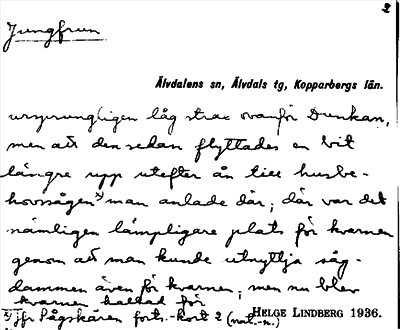 2
Jungfrun
Älvdalens sn, Älvdals tg, Kopparbergs län.
ursprungligen låg strax ovanför Dunkan,
men att den sedan flyttades en bit
längre upp utefter ån till husbe-
hovssågen x) man anlade där; där var det
nämligen lämpligare plats för kvarnen
genom att man kunde utnyttja såg-
dammen även för kvarnen; men nu blev
kvarnen kallad för
x) jfr Sågskären forts.-kort 2 (nat.-n.)
HELGE LINDBERG 1936.